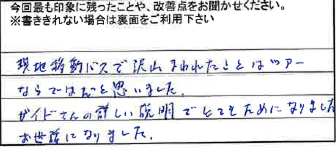 今回最も印象に残ったことや、改善点をお聞かせください。
※書ききれない場合は裏面をご利用下さい
現地移動バスで沢山まわれたことはツアー
ならではだと思いました。
ガイドさんの詳しい説明でとてもためになりました
お世話になりました。